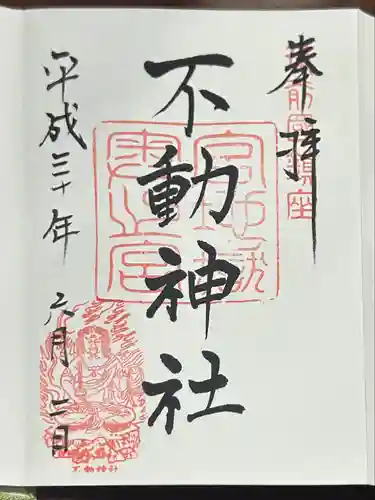 奉拝
不動神社
平成三十年六月二日
不動神社